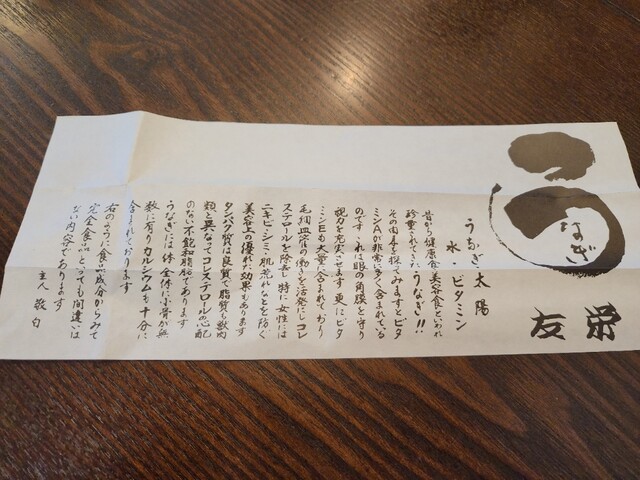 うなぎ
友栄
うなぎ太陽
水・ビタミン
昔から健康食、美容食といわれ
珍重されてきたうなぎ!!
その内容を探てみますとビタ
ミンAが非常に多く含まれている
のです これは眼の角膜を守り
視力を充実させます 更にビタ
ミンEも大量に含まれており
毛細血管の働きを活発にしコレ
ステロールを除去し特に女性には
ニキビ・シミ・肌荒れなどを防ぐ
美容上の優れた効果もあります
タンパク質は良質で脂質も獣肉
類と異なってコレステロールの心配
のない不飽和脂肪であります
うなぎには体全体に小骨が無
数に有りカルシウムも十分に
含まれております
右のように食品成分からみて
完全食品といっても間違いは
ない内容であります
主人 敬白